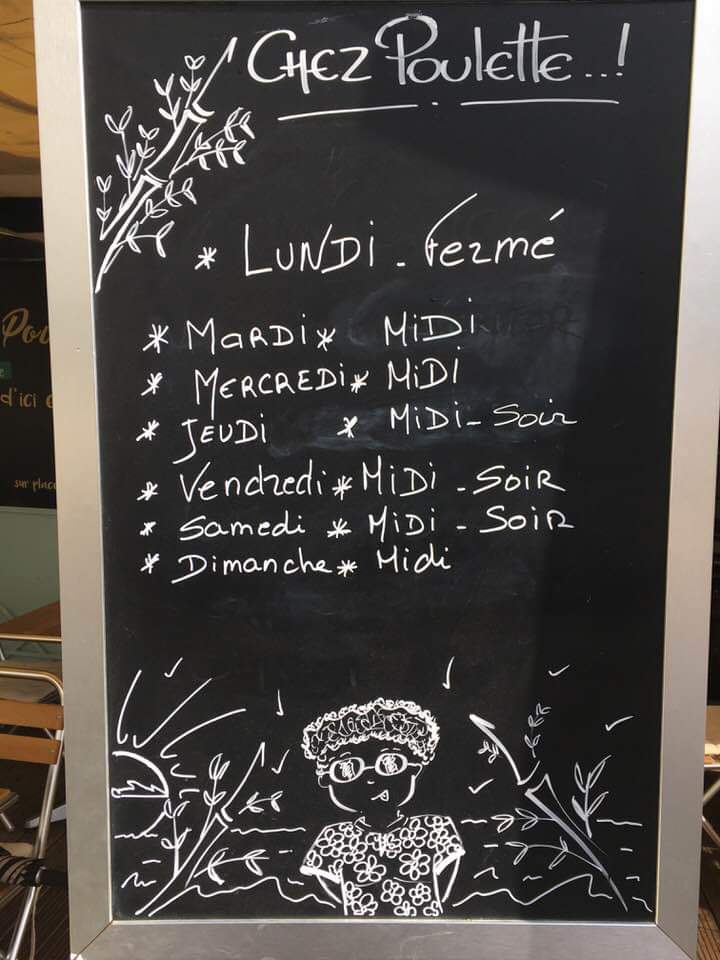 CHEZ Poulette...!
* LUNDi - fermé
* MARDi * MiDi
* MERCREDi * MiDI
* JEUDi * MiDi - Soir
* Vendredi * MiDi - SOiR
* Samedi * MiDi - SOiR
* Dimanche * Midi
Pou
d'ici
sur place